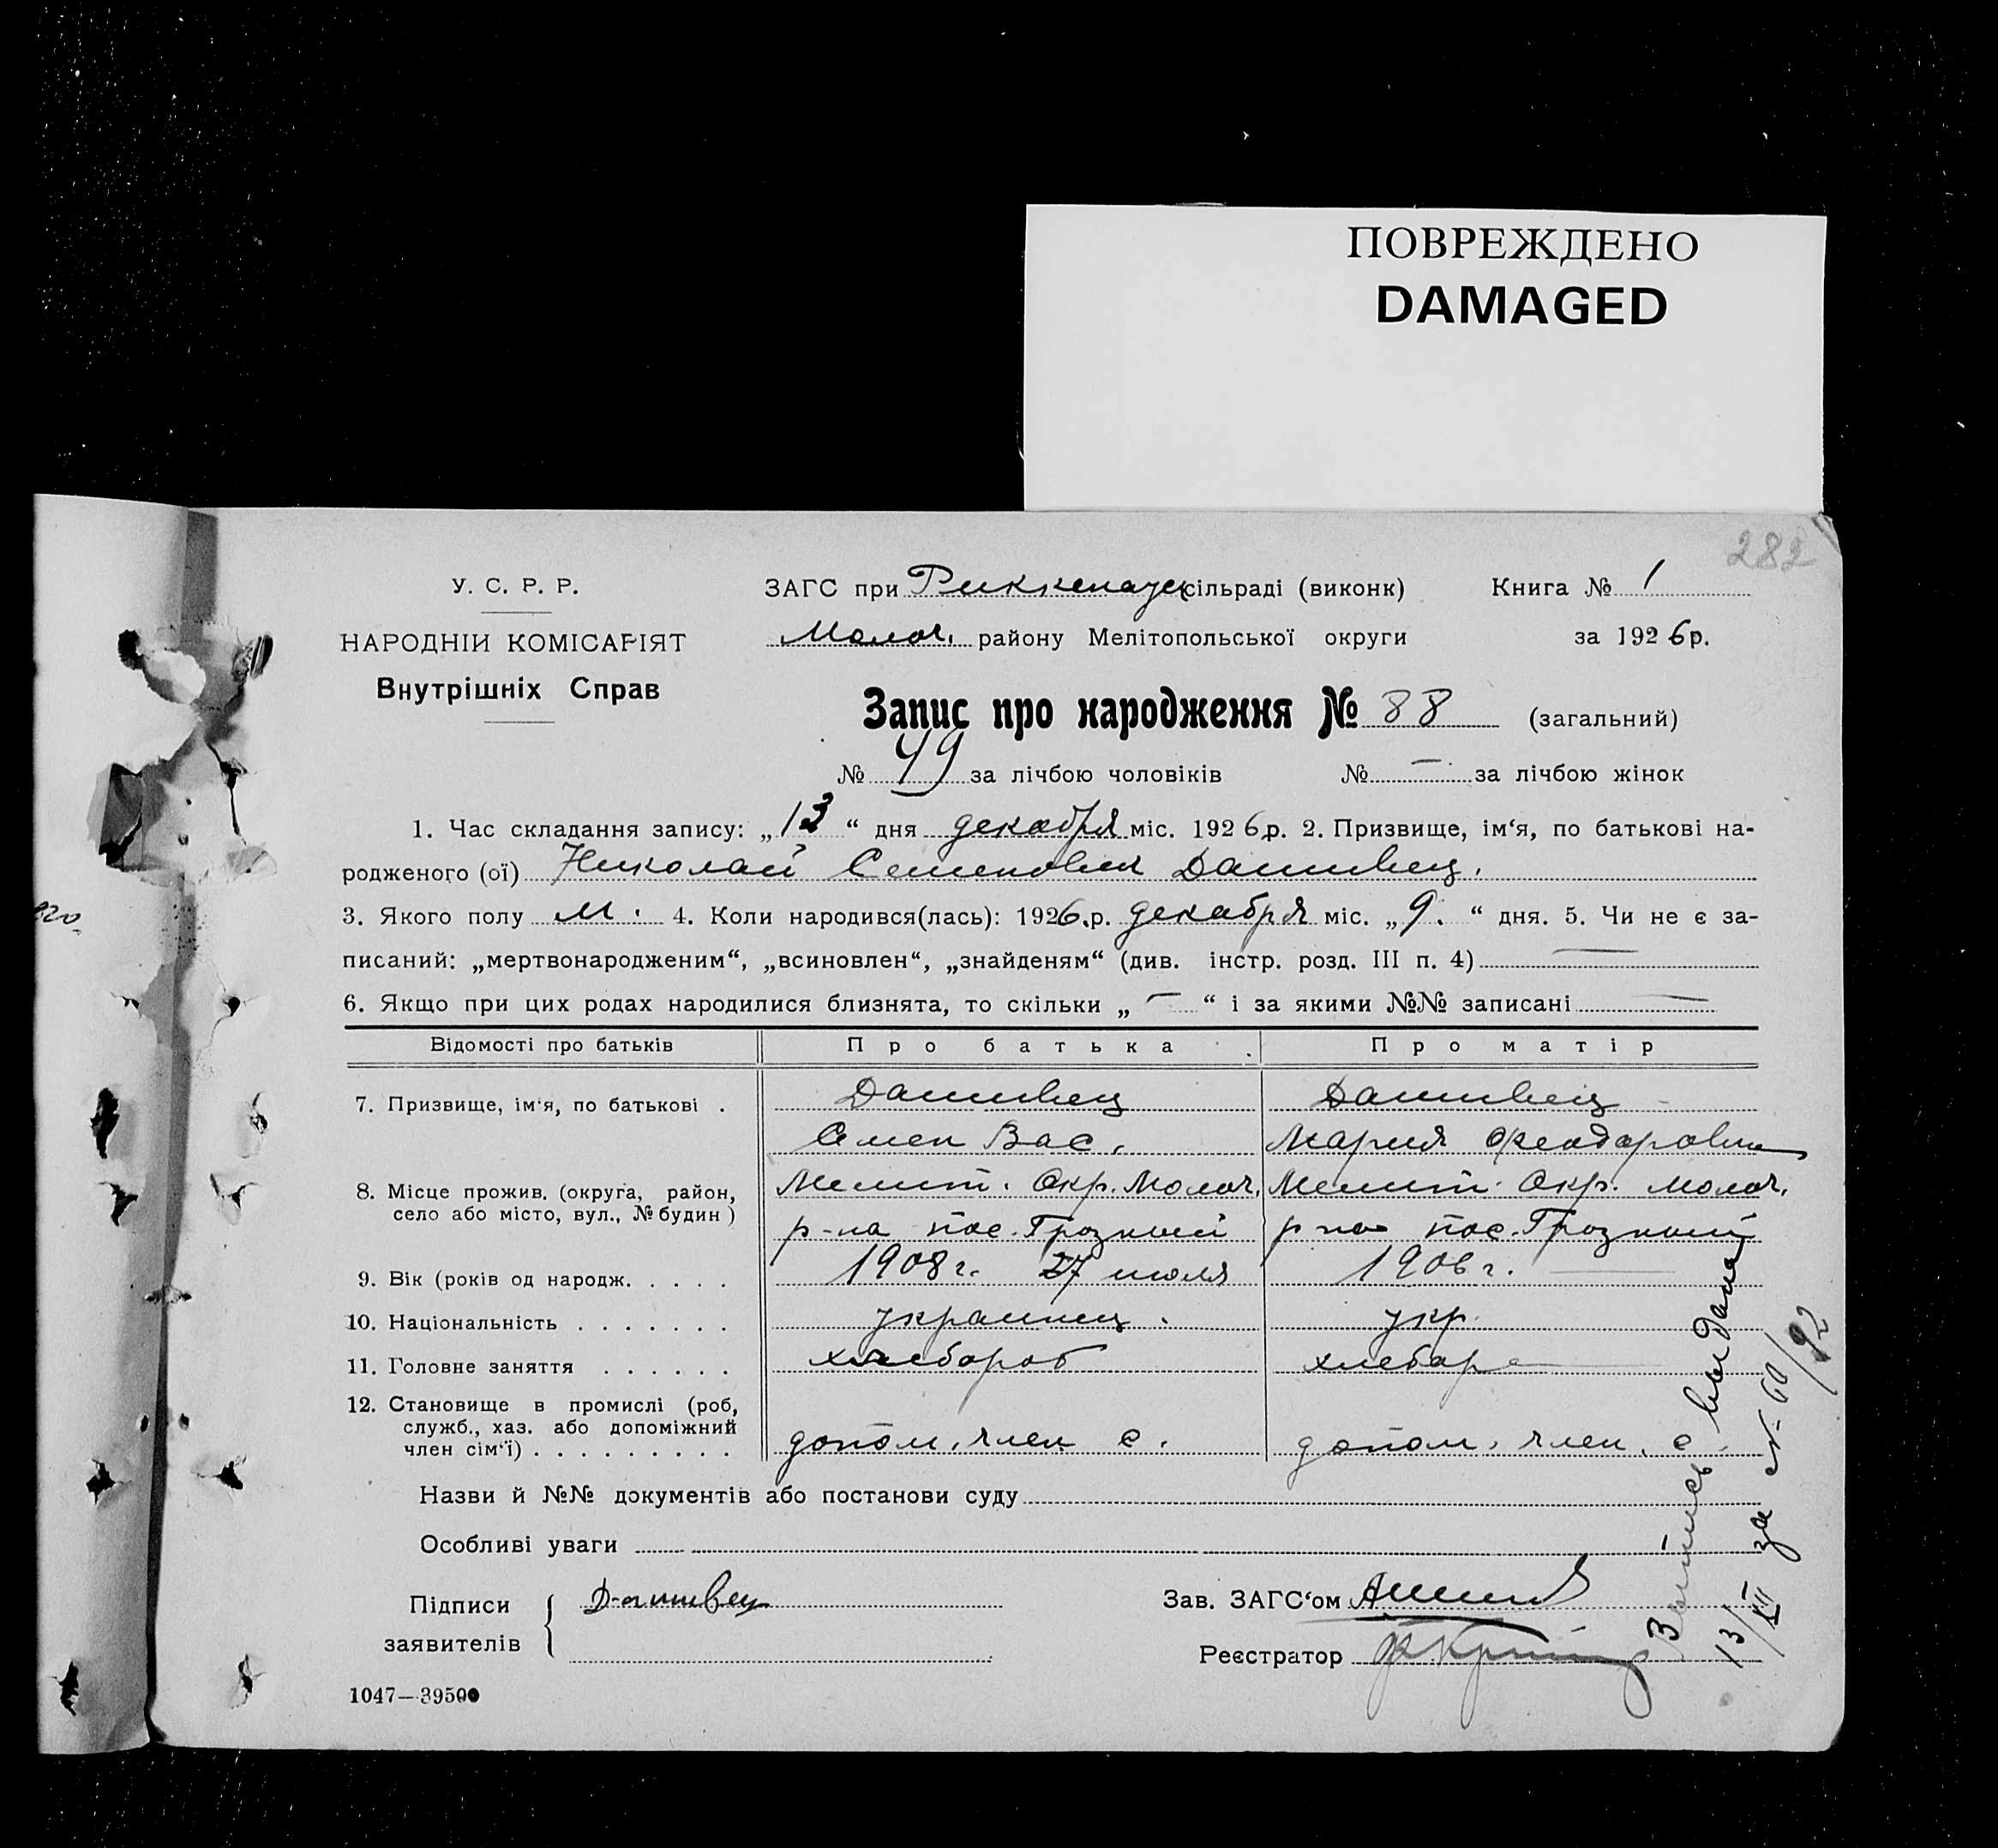 ПОВРЕЖДЕНО
DAMAGED
282
У. С. Р. Р.
НАРОДНІЙ КОМІСАРІЯТ
Внутрішніх Справ
ЗАГС при Риккенауск сільраді (виконк)
Молоч. району Мелітопольської округи
Книга № 1
за 1926 р.
Запис про народження № 88 (загальний)
№ 49 за лічбою чоловіків № — за лічбою жінок
1. Час складання запису: „13“ дня декабря міс. 1926 р. 2. Призвище, ім‘я, по батькові на-
родженого (ої) Николай Семенович Дашивец.
3. Якого полу м. 4. Коли народився(лась): 1926.р. декабря міс. „9.“ дня. 5. Чи не є за-
писаний: „мертвонародженим“, „всиновлен“, „знайденям“ (див. інстр. розд. III п. 4) —
6. Якщо при цих родах народилися близнята, то скільки „—“ і за якими №№ записані —
Відомості про батьків Про батька Про матір
7. Призвище, ім‘я, по батькові . Дашивец Дашивец
Семен Вас. Мария Феодоровна
8. Місце прожив. (округа, район, Мелит. Окр. Молоч. Мелит. Окр. Молоч.
село або місто, вул., № будин) р-на пос. Грозный р-на пос. Грозный
9. Вік (років од народж. . . . . 1908 г. 27 июля 1906 г. —
10. Національність . . . . . . . украинец. укр.
11. Головне заняття . . . . . . хлебороб хлебор
12. Становище в промислі (роб,
служб., хаз. або допоміжний
член сім‘ї) . . . . . . . . . допом. член с. допом. член. с.
Назви й №№ документів або постанови суду
Особливі уваги
Підписи заявителів Дашивец
Зав. ЗАГС‘ом
Реєстратор
Выпись выдана
13/XII за № 60/92
1047—39500